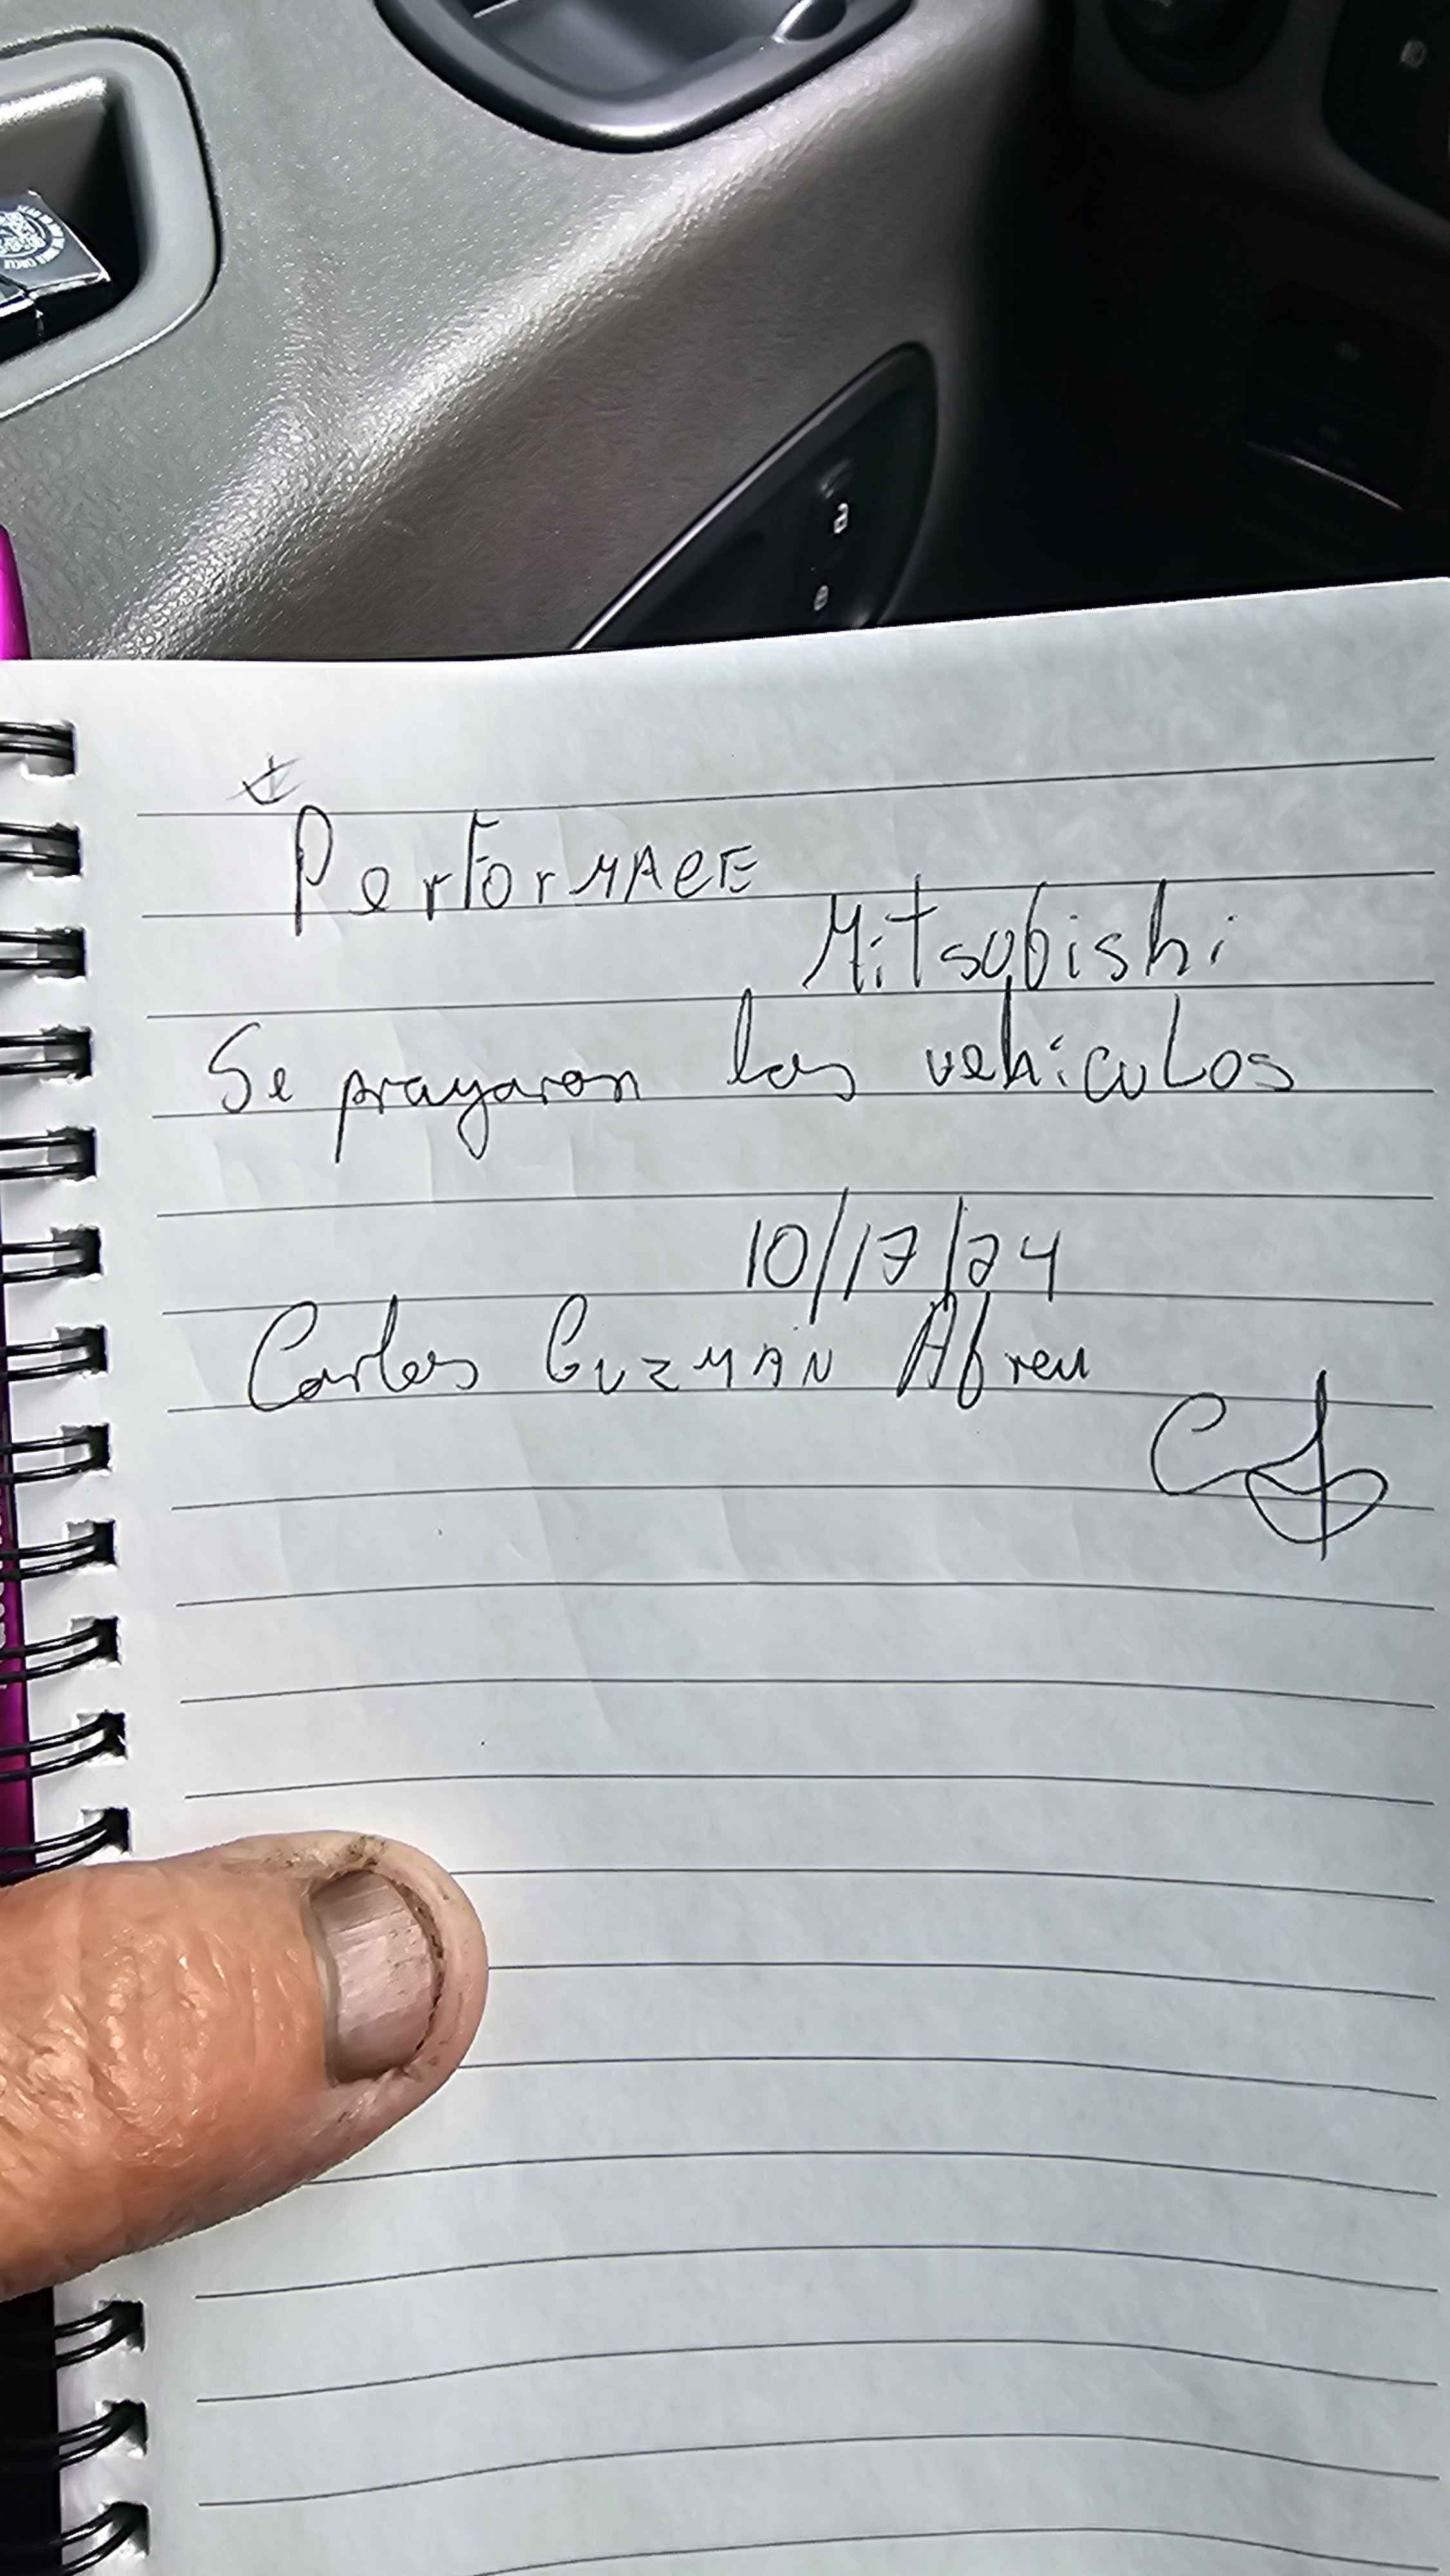 PerforMACE
Mitsobishi
Se prayaron los vehiculos
10/17/24
Carlos GUZMAN Abreu